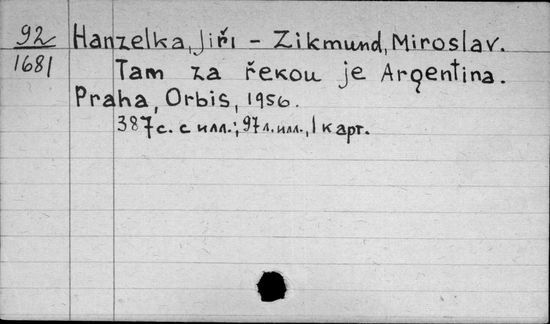 92
1681
Hanzelka, Jiři - Zikmund, Miroslav.
Tam za řekou je Argentina.
Praha, Orbis, 1956.
387 с. с илл.; 97 л. илл., 1 карт.